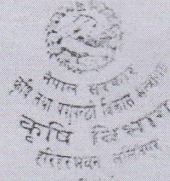 नेपाल सरकार
कृषि तथा पशुपन्छी विकास मन्त्रालय
कृषि विभाग
हरिहरभवन ललितपुर